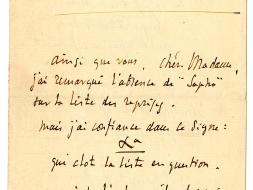 ainsi que vous, chère Madame,
j'ai remarqué l'absence de "Sapho"
sur la liste des reprises.
mais j'ai confiance dans le signe :
qui clot la liste en question.